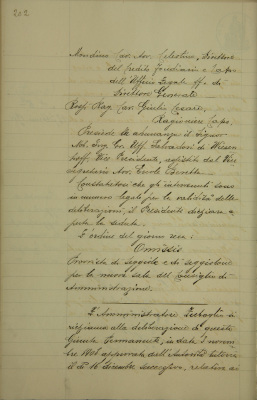 202
Mondino Cav. Avv. Celestino, Direttore
del Credito Fondiario e Capo
dell'Ufficio Legale ff. di
Direttore Generale
Rag. Cav. Giulio Cesare,
Ragioniere Capo.
Presiede le adunanza il Signor
Nob. Ing. Gr. Uff. Salvadori di Wiesen-
hoff, Vice Presidente, assistito dal Vice
Segretario Avv. Ercole
Constatatosi che gli intervenuti sono
in numero legale per la validità delle
deliberazioni, il Presidente dichiara a-
perta la seduta.
L'ordine del giorno reca:
Omissis
Provvista di seggiole e di seggioloni
per la nuova sala del Consiglio di
Amministrazione.
L'Amministratore si
riferisce alla deliberazione di questa
Giunta Permanente, in data 3 novem-
bre 1906 approvata dall'Autorità tutoria
il dì 16 dicembre successivo, relativa ai